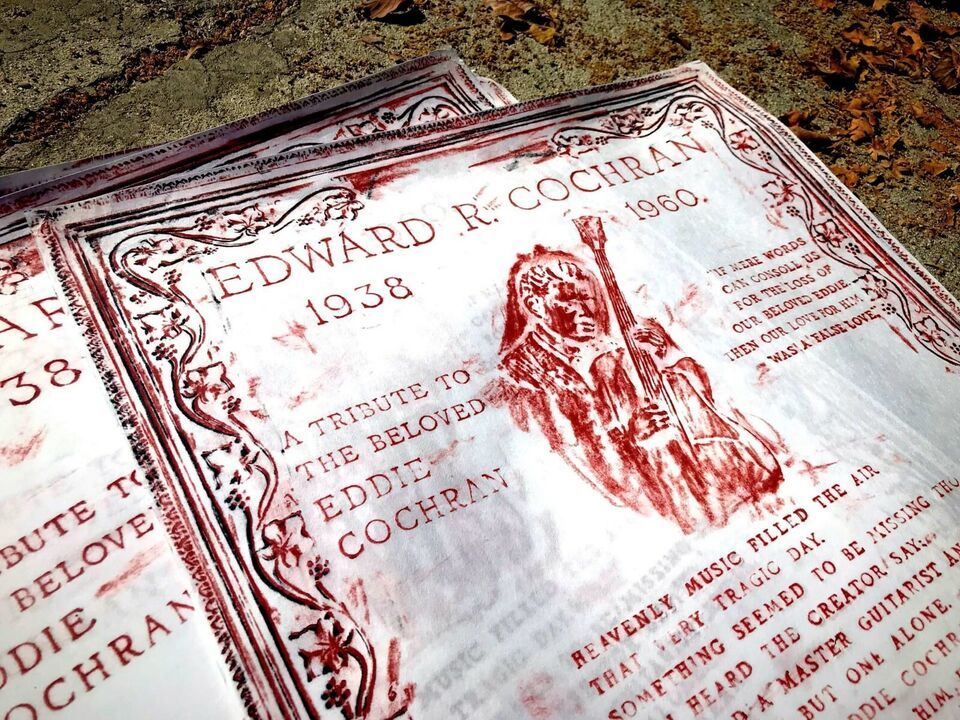 EDWARD R. COCHRAN
1938
1960.
A TRIBUTE TO
THE BELOVED
EDDIE
COCHRAN
"IF MERE WORDS
CAN CONSOLE US
FOR THE LOSS OF
OUR BELOVED EDDIE.
THEN OUR LOVE FOR HIM
WAS A FALSE LOVE."
HEAVENLY MUSIC FILLED THE AIR
THAT VERY TRAGIC DAY.
SOMETHING SEEMED TO BE MISSING THO
I HEARD THE CREATOR SAY:
A MASTER GUITARIST AN
BUT ONE ALONE.
EDDIE COCHR
HIM
38
BUTE TO
BELOVE
DDIE
OCHRAN